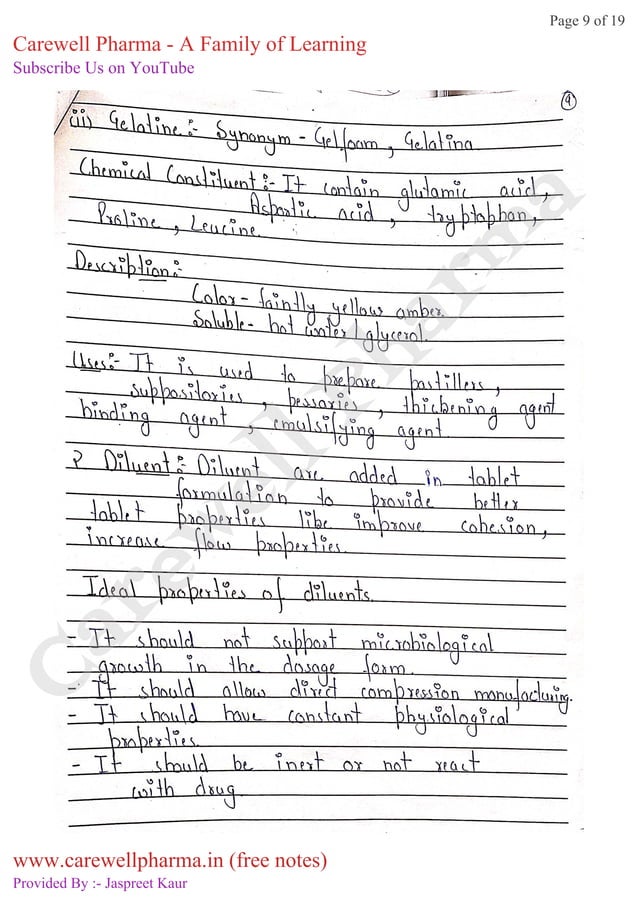 Page 9 of 19
Carewell Pharma - A Family of Learning
Subscribe Us on YouTube
9
(ii) Gelatine:- Synonym - Gelfoam, Gelatina
Chemical Constituent:- It contain glutamic acid,
Aspartic acid, tryptaphan,
Proline, Leucine.
Description:-
Color- faintly yellow amber.
Soluble- hot water glycerol.
Uses:- It is used to prepare pastillers,
suppositories, pessaries, thickening agent
binding agent, emulsifying agent.
2 Diluent:- Diluent are added in tablet
formulation to provide better
tablet properties like improve cohesion,
increase flow properties.
Ideal properties of diluents.
- It should not support microbiological
growth in the dosage form.
- It should allow direct compression manufacturing.
- It should have constant physiological
properties.
- It should be inert or not react
with drug.
Carewell Pharma
www.carewellpharma.in (free notes)
Provided By :- Jaspreet Kaur